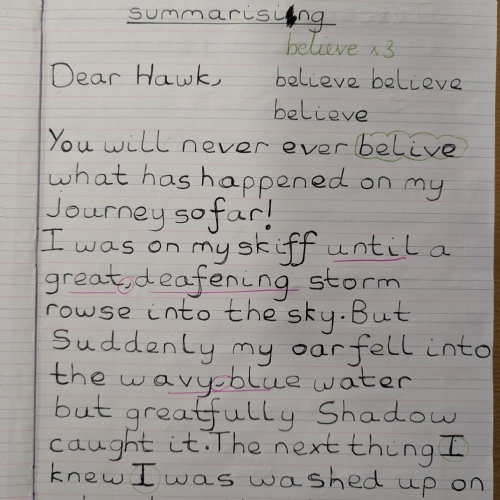 summarising
believe x3
Dear Hawk,
believe believe
believe
You will never ever belive
what has happened on my
Journey so far!
I was on my skiff until a
great, deafening storm
rowse into the sky. But
Suddenly my oar fell into
the wavy, blue water
but greatfully Shadow
caught it. The next thing I
knew I was washed up on